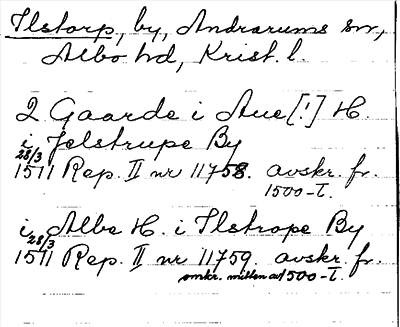 Ilstorp, by, Andrarums sn,
Albo hd, Krist. l.
2 Gaarde i Aue [!] H.
i Jelstrupe By
28/3
1511 Rep. II nr 11758. avskr. fr.
1500-t.
i Albe H. i Ilstrope By
28/3
1511 Rep. II nr 11759. avskr. fr.
omkr. mitten av 1500-t.